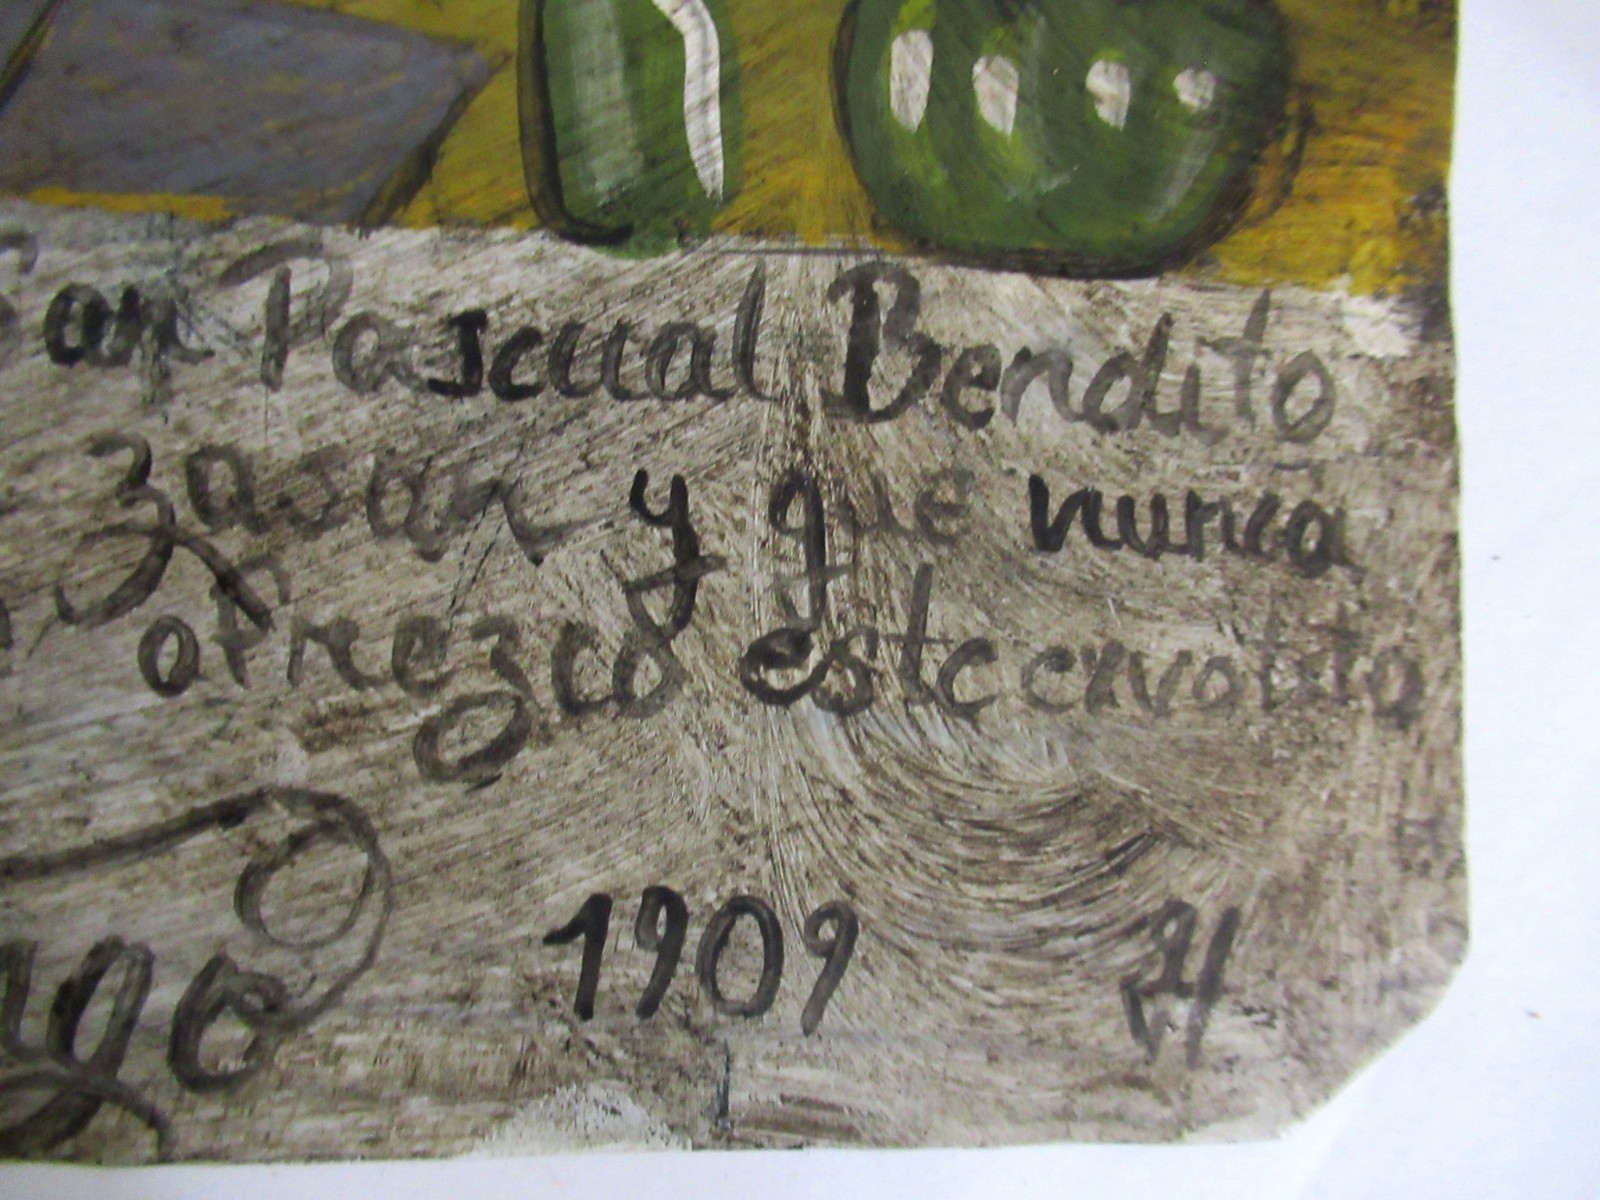 San Pascual Bendito
y que nunca
ofrezco este exvotito
1909